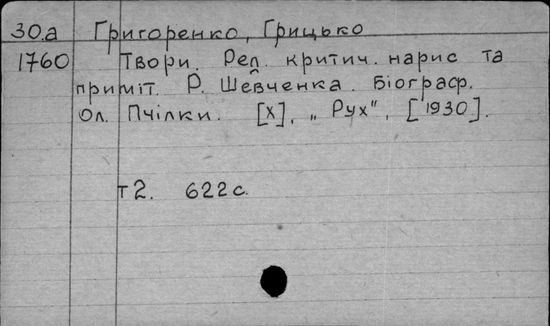 30.а Григоренко, Грицько
1760 Твори. Ред. критич. нарис та
приміт. Р. Шевченка. Біограф.
Ол. Пчілки. [Х], „Рух", [1930].
т2. 622с.